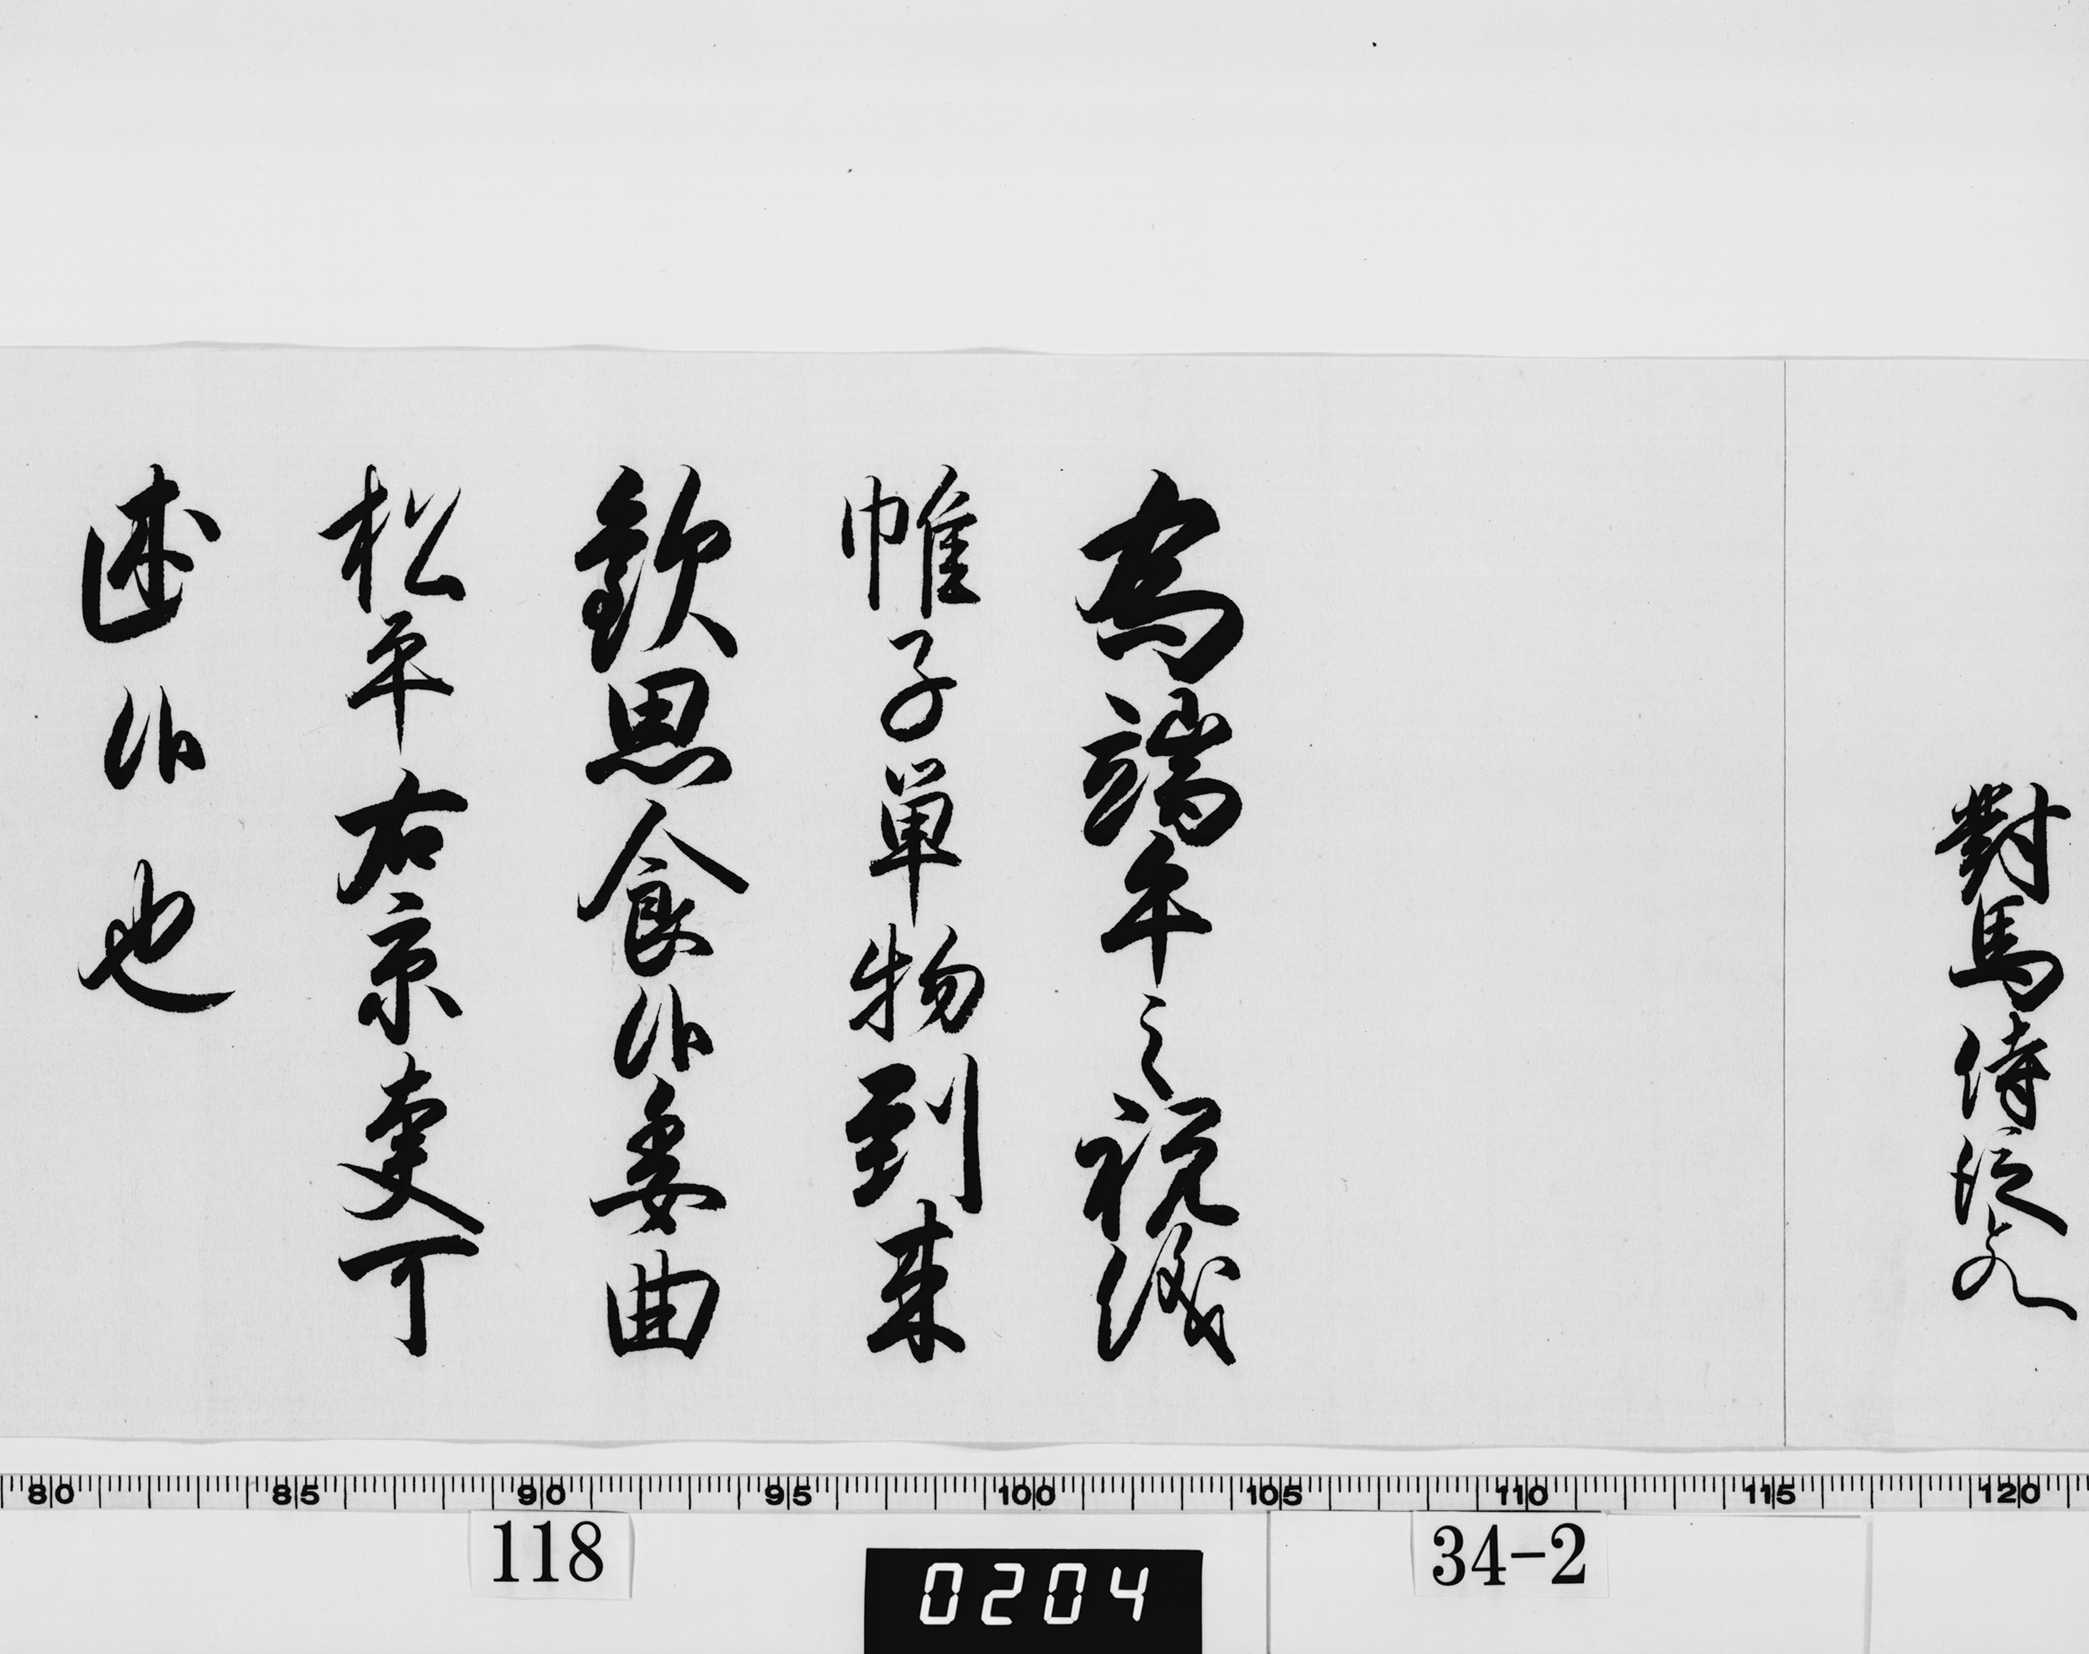 對馬侍従とのへ
為端午之祝儀
帷子単物到来
歓思食候委曲
松平右京大夫可
述候也
80 85 90 95 100 105 110 115 120
118
34-2
0204